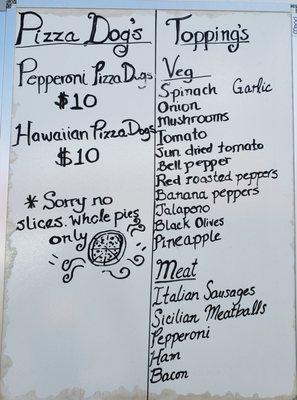 Pizza Dog's
Pepperoni Pizza Dogs
$10
Hawaiian Pizza Dogs
$10
* Sorry no
slices. Whole pies
only
Topping's
Veg
Spinach Garlic
Onion
Mushrooms
Tomato
Sun dried tomato
Bell pepper
Red roasted peppers
Banana peppers
Jalapeno
Black Olives
Pineapple
Meat
Italian Sausages
Sicilian Meatballs
Pepperoni
Ham
Bacon